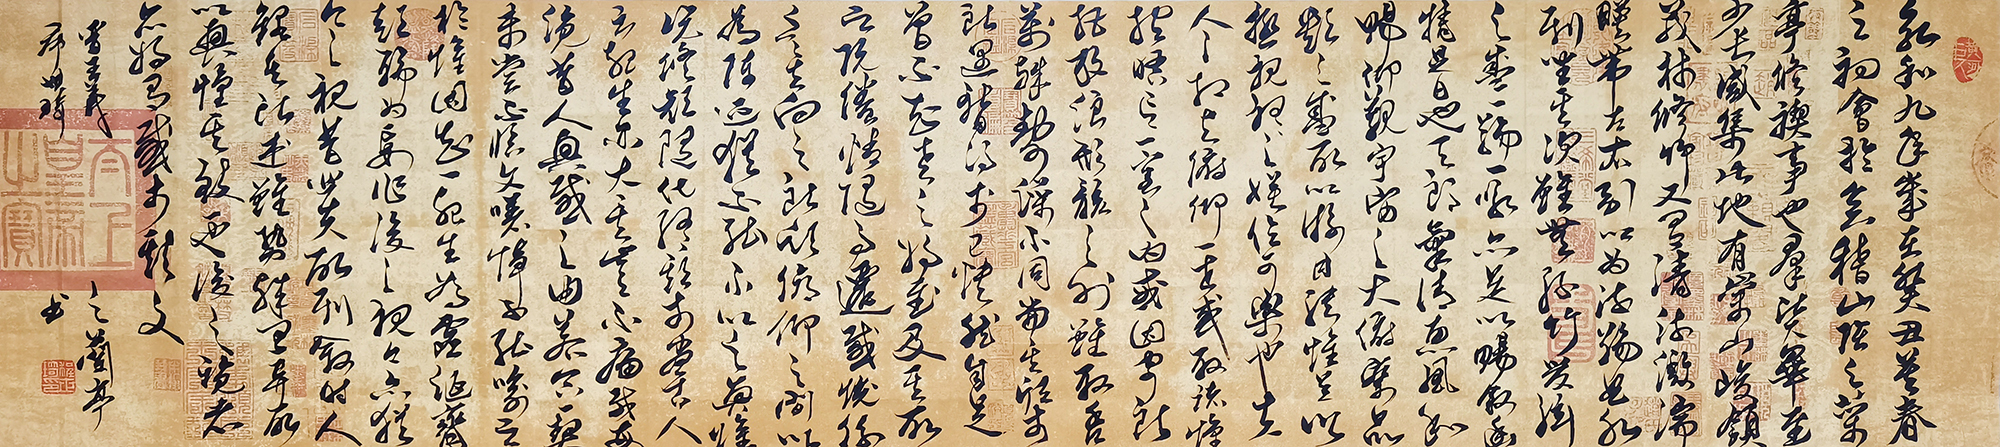 永和九年歲在癸丑暮春
之初會於會稽山陰之蘭
亭修禊事也群賢畢至
少長咸集此地有崇山峻領
茂林修竹又有清流激湍
暎帶左右引以為流觴曲水
列坐其次雖無絲竹管弦
之盛一觴一詠亦足以暢敘幽
情是日也天朗氣清惠風和
暢仰觀宇宙之大俯察品
類之盛所以遊目騁懷足以
極視聽之娛信可樂也夫
人之相與俯仰一世或取諸懷
抱悟言一室之內或因寄所
託放浪形骸之外雖取舍
萬殊靜躁不同當其欣於
所遇暫得於己怏然自足
曾不知老之將至及其所
之既倦情隨事遷感慨係
之矣向之所欣俯仰之間以
為陳迹猶不能不以之興懷
況脩短隨化終期於盡古人
云死生亦大矣豈不痛哉每
覽昔人興感之由若合一契
未嘗不臨文嗟悼不能喻之
於懷固知一死生為虛誕齊
彭殤為妄作後之視今亦猶
今之視昔悲夫故列敘時人
錄其所述雖世殊事異所
以興懷其致一也後之覽者
亦將有感於斯文
晉王羲之蘭亭
序 書
太上皇帝之寶